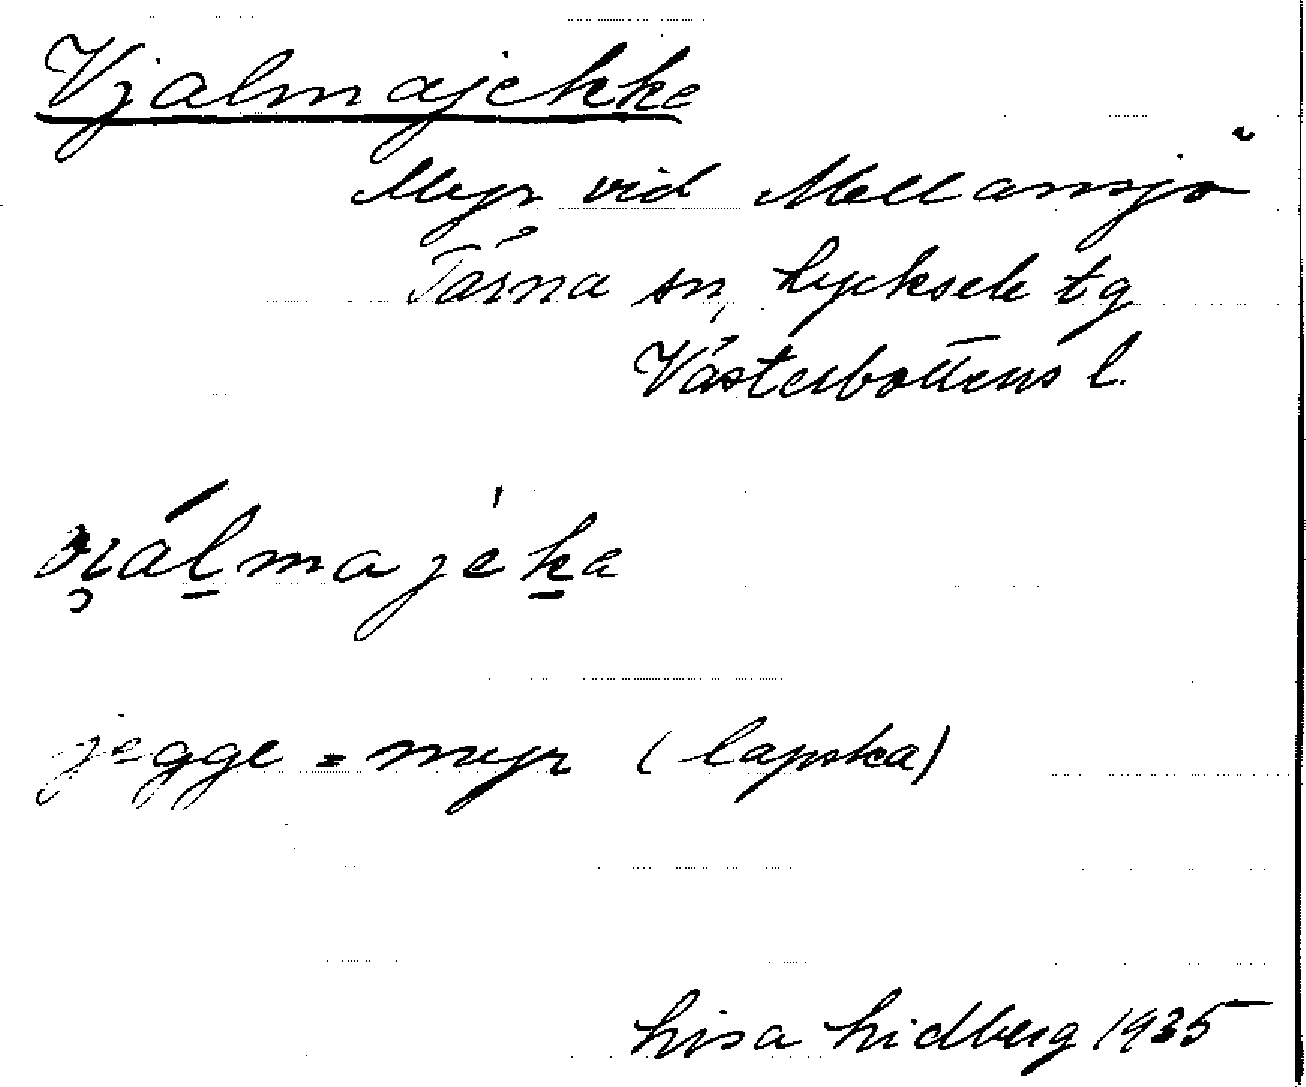 Vjalmajekke
Myr vid Mellansjö
Tärna sn, Lycksele tg
Västerbottens l.
vi̯álmajèka
jegge = myr (lapska)
Lisa Lidberg 1935